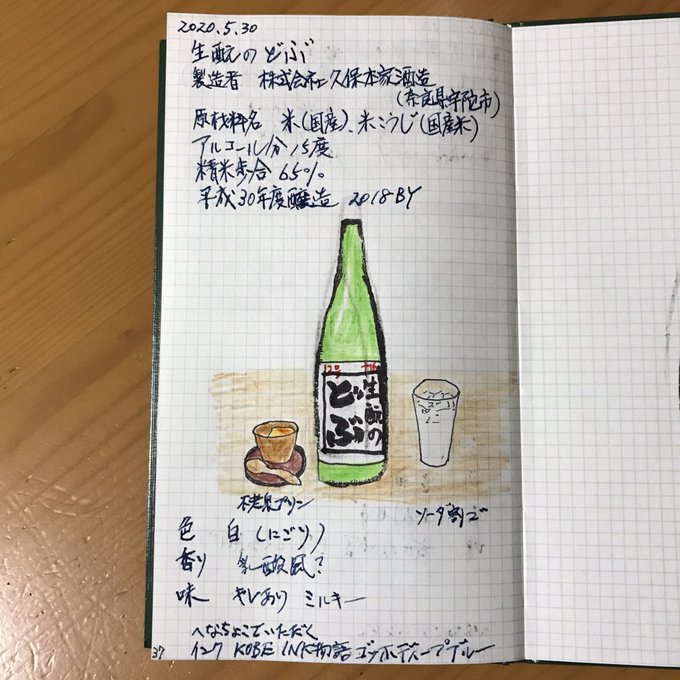 2020.5.30
生酛のどぶ
製造者 株式会社久保本家酒造
(奈良県宇陀市)
原材料名 米(国産)、米こうじ(国産米)
アルコール分 15度
精米歩合 65%
平成30年度醸造 2018BY
生酛の
どぶ
プリン
ソーダ割で
色 白 (にごり)
香り 乳酸風?
味 キレあり ミルキー
へなちょこでいただく
インク KOBE INK物語 ゴッホディープブルー
37